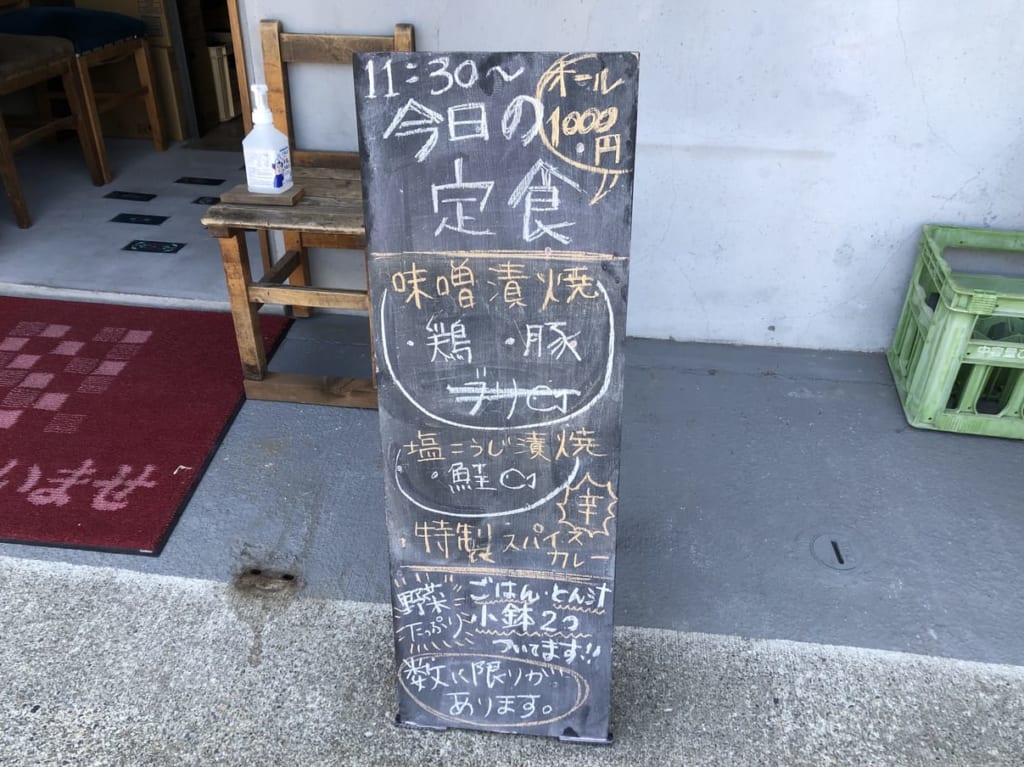 11:30~
オール
1000
円
今日の
定食
味噌漬焼
・鶏 ・豚
ブリ
塩こうじ漬焼
・鮭
辛
・特製スパイス
カレー
野菜
たっぷり
ごはん・とん汁
小鉢2つ
ついてます!!
数に限りが
あります。